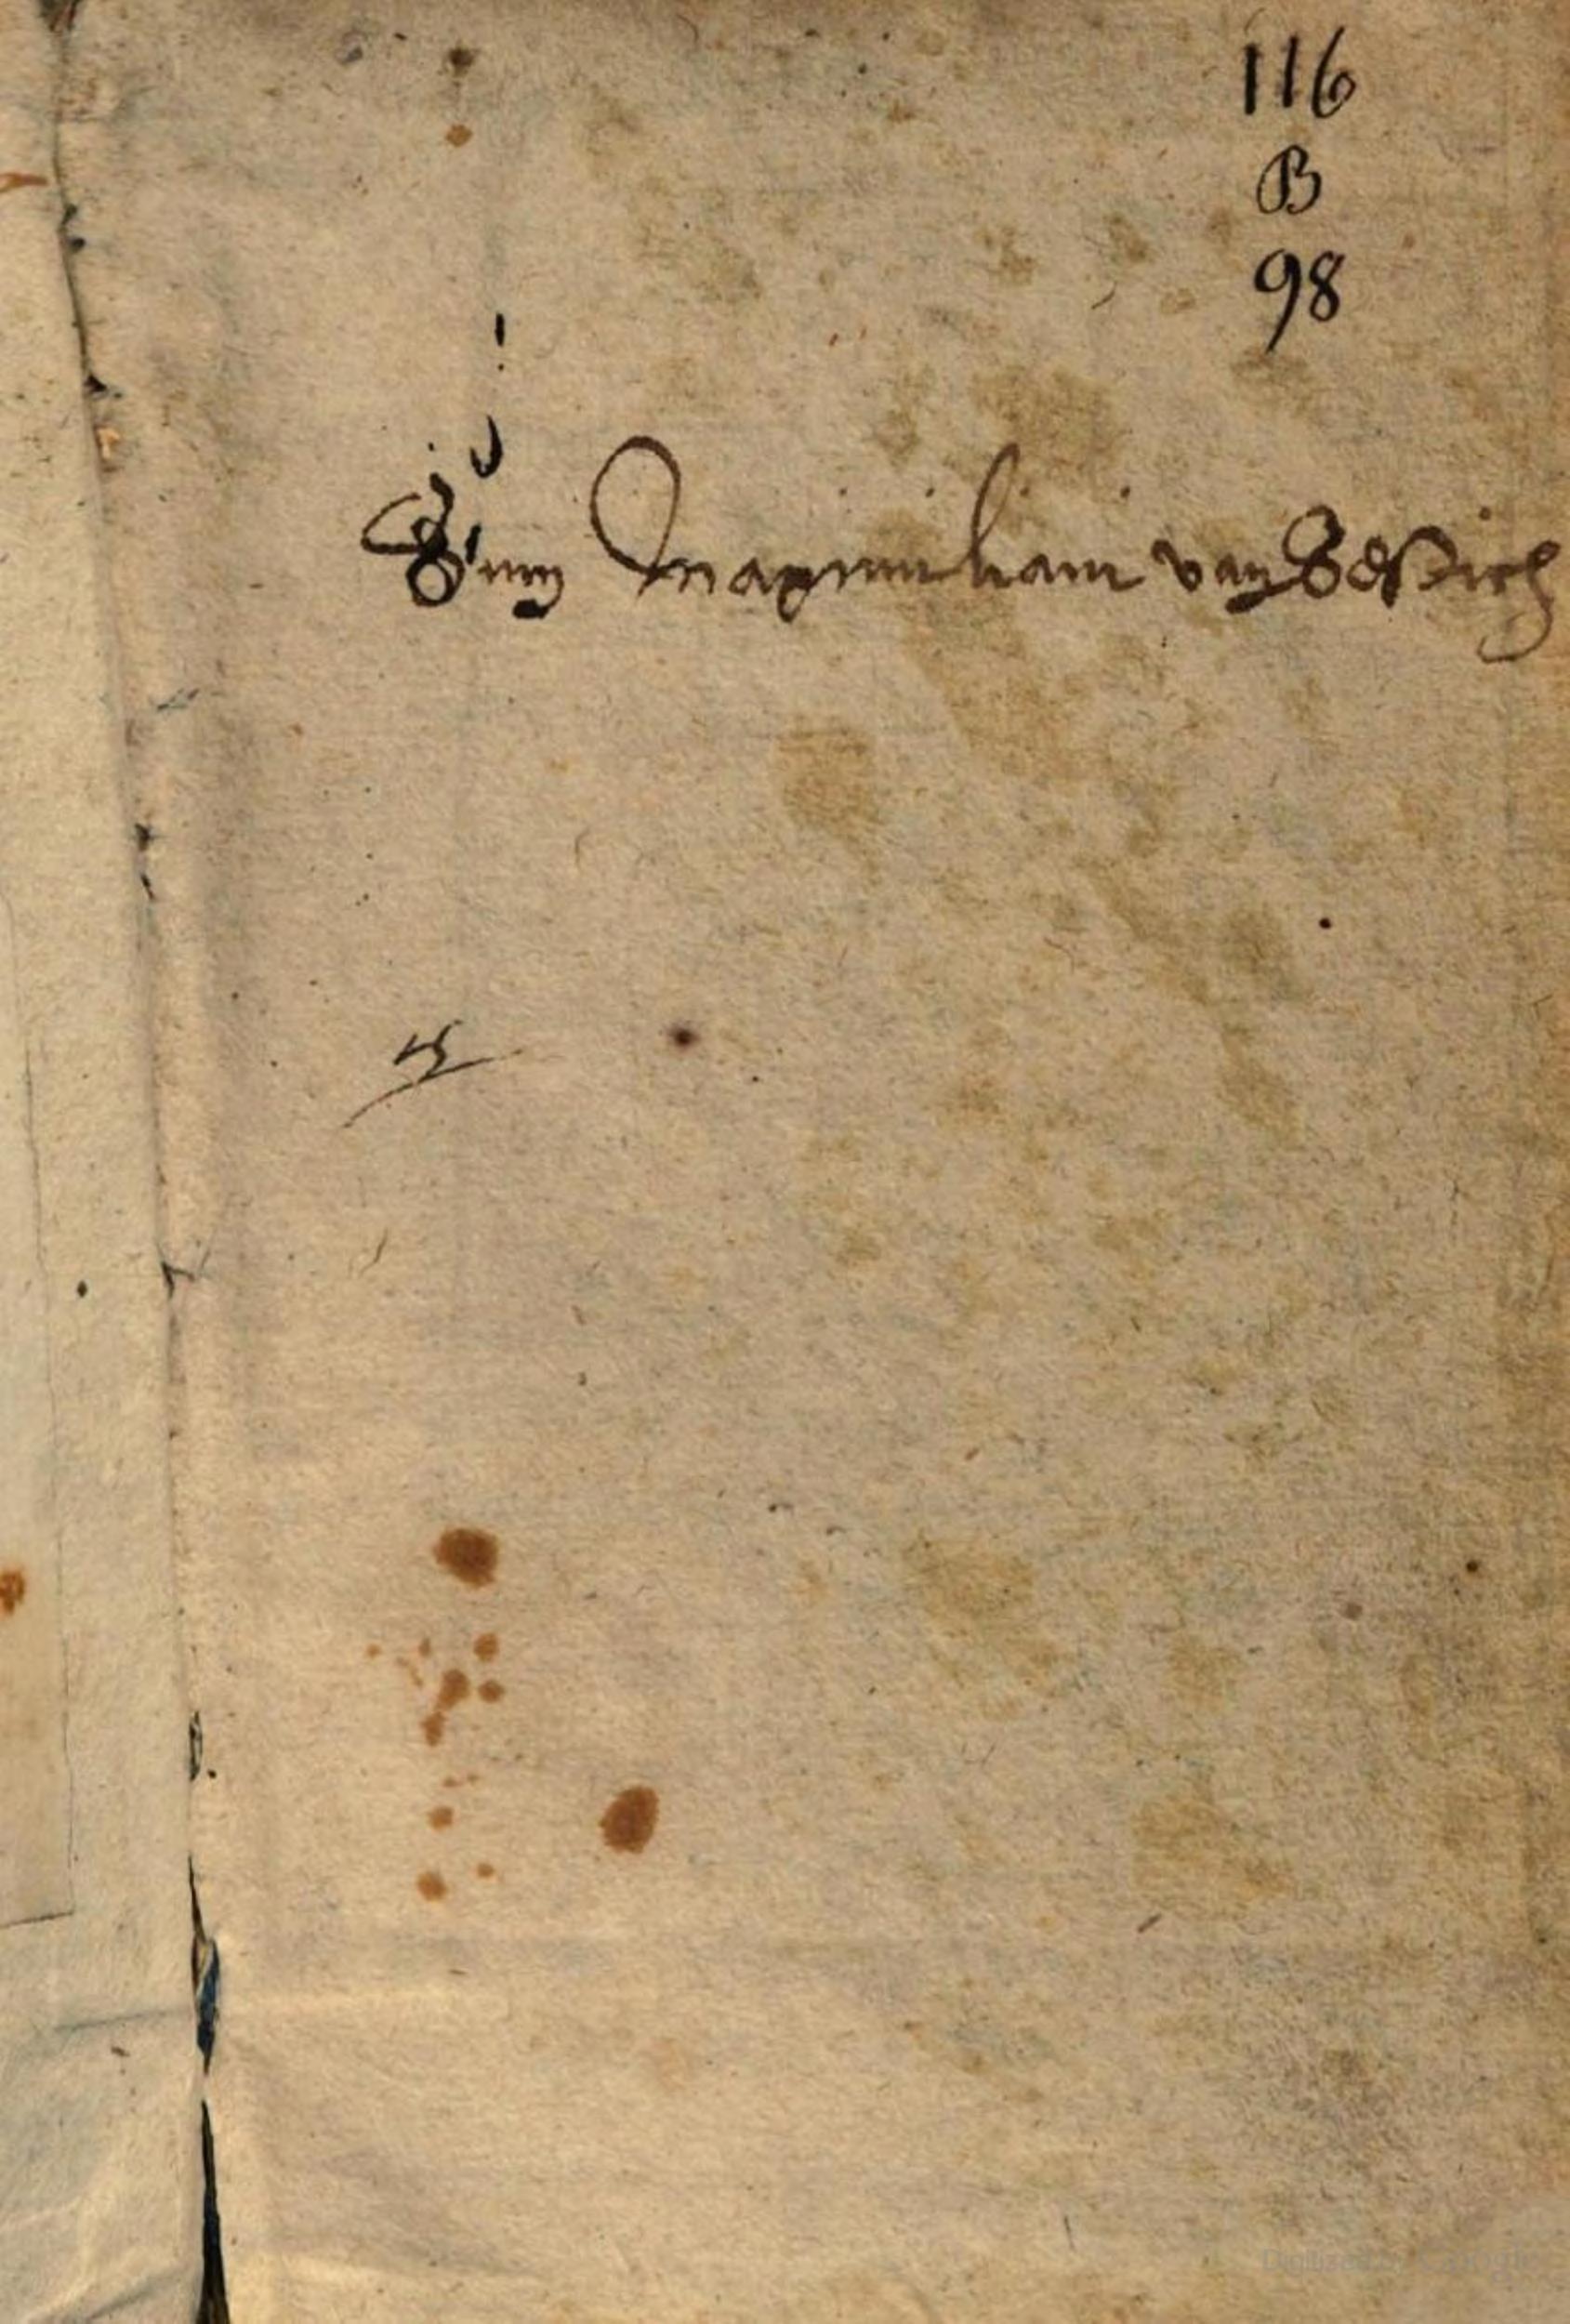 116
B
98
Sum Maximiliani van
Digitized by Google